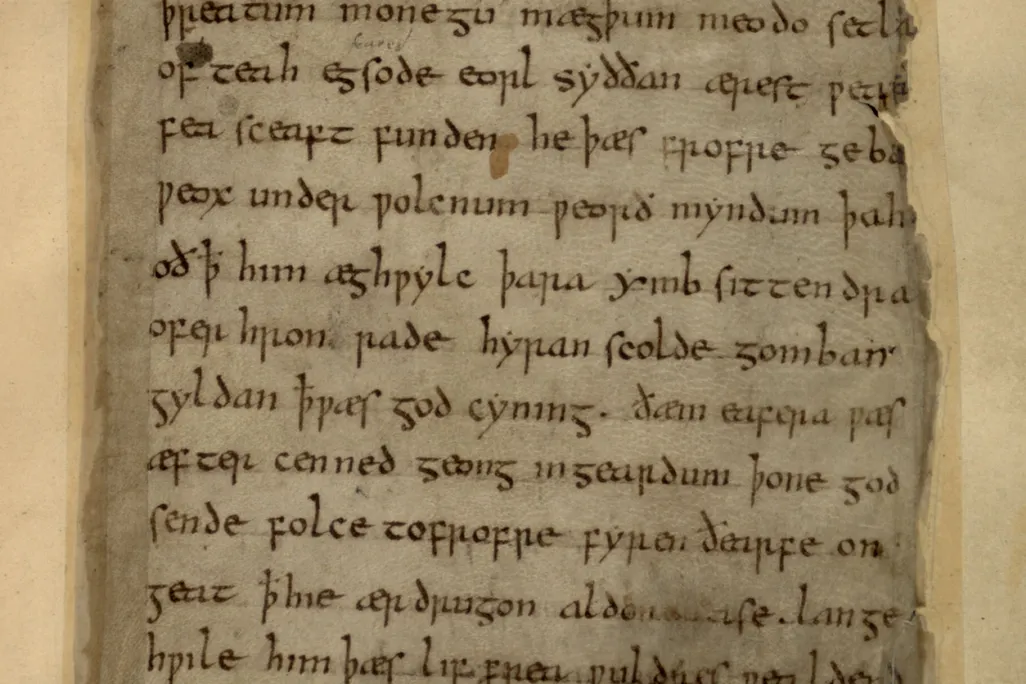 þreatum monegū mægþum meodo setla
of teah egsode eorl syððan ærest wearð
fea sceaft funden he þæs frofre geba
weox under wolcnum weorð myndum þah
oð ꝥ him æghwylc þara ymb sittendra
ofer hron rade hyran scolde gomban
gyldan ꝥ wæs god cyning. ðæm eafera wæs
æfter cenned geong in geardum þone god
sende folce to frofre fyren ðearfe on
geat ꝥ hie ær drugon aldor ase. lange
hwile him þæs lif frea wuldres wealdend